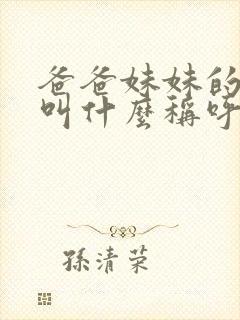 爸爸妹妹的
叫什麼稱呼
孫清荣